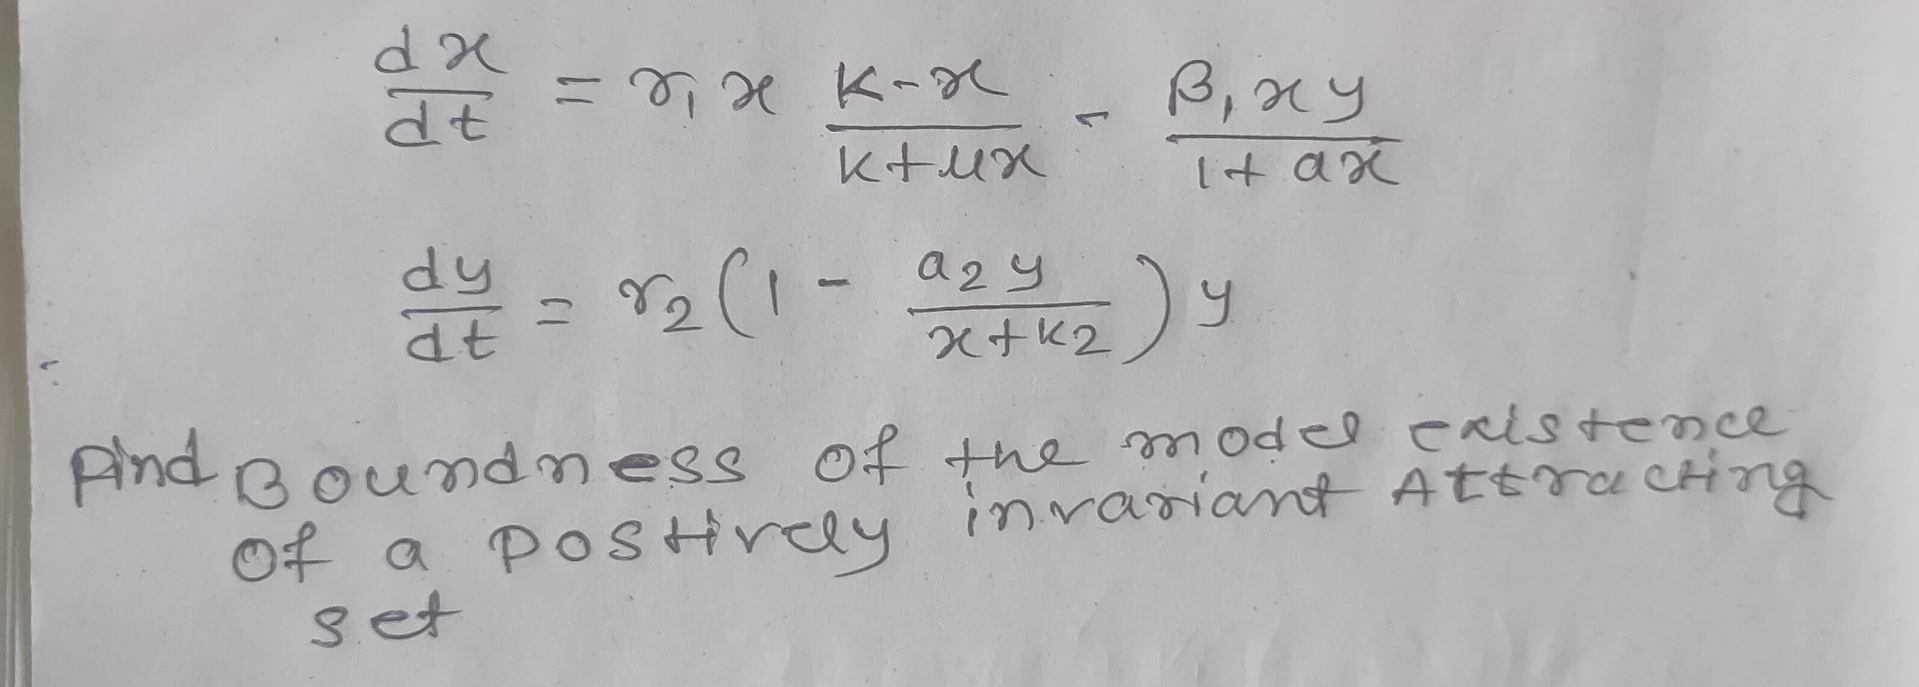 dx/dt = r₁ x (K-x)/(K+μx) - β₁xy/(1+ax)
dy/dt = r₂(1 - a₂y/(x+k₂))y
Find Boundness of the model existence
of a Postively invariant Attracting
set